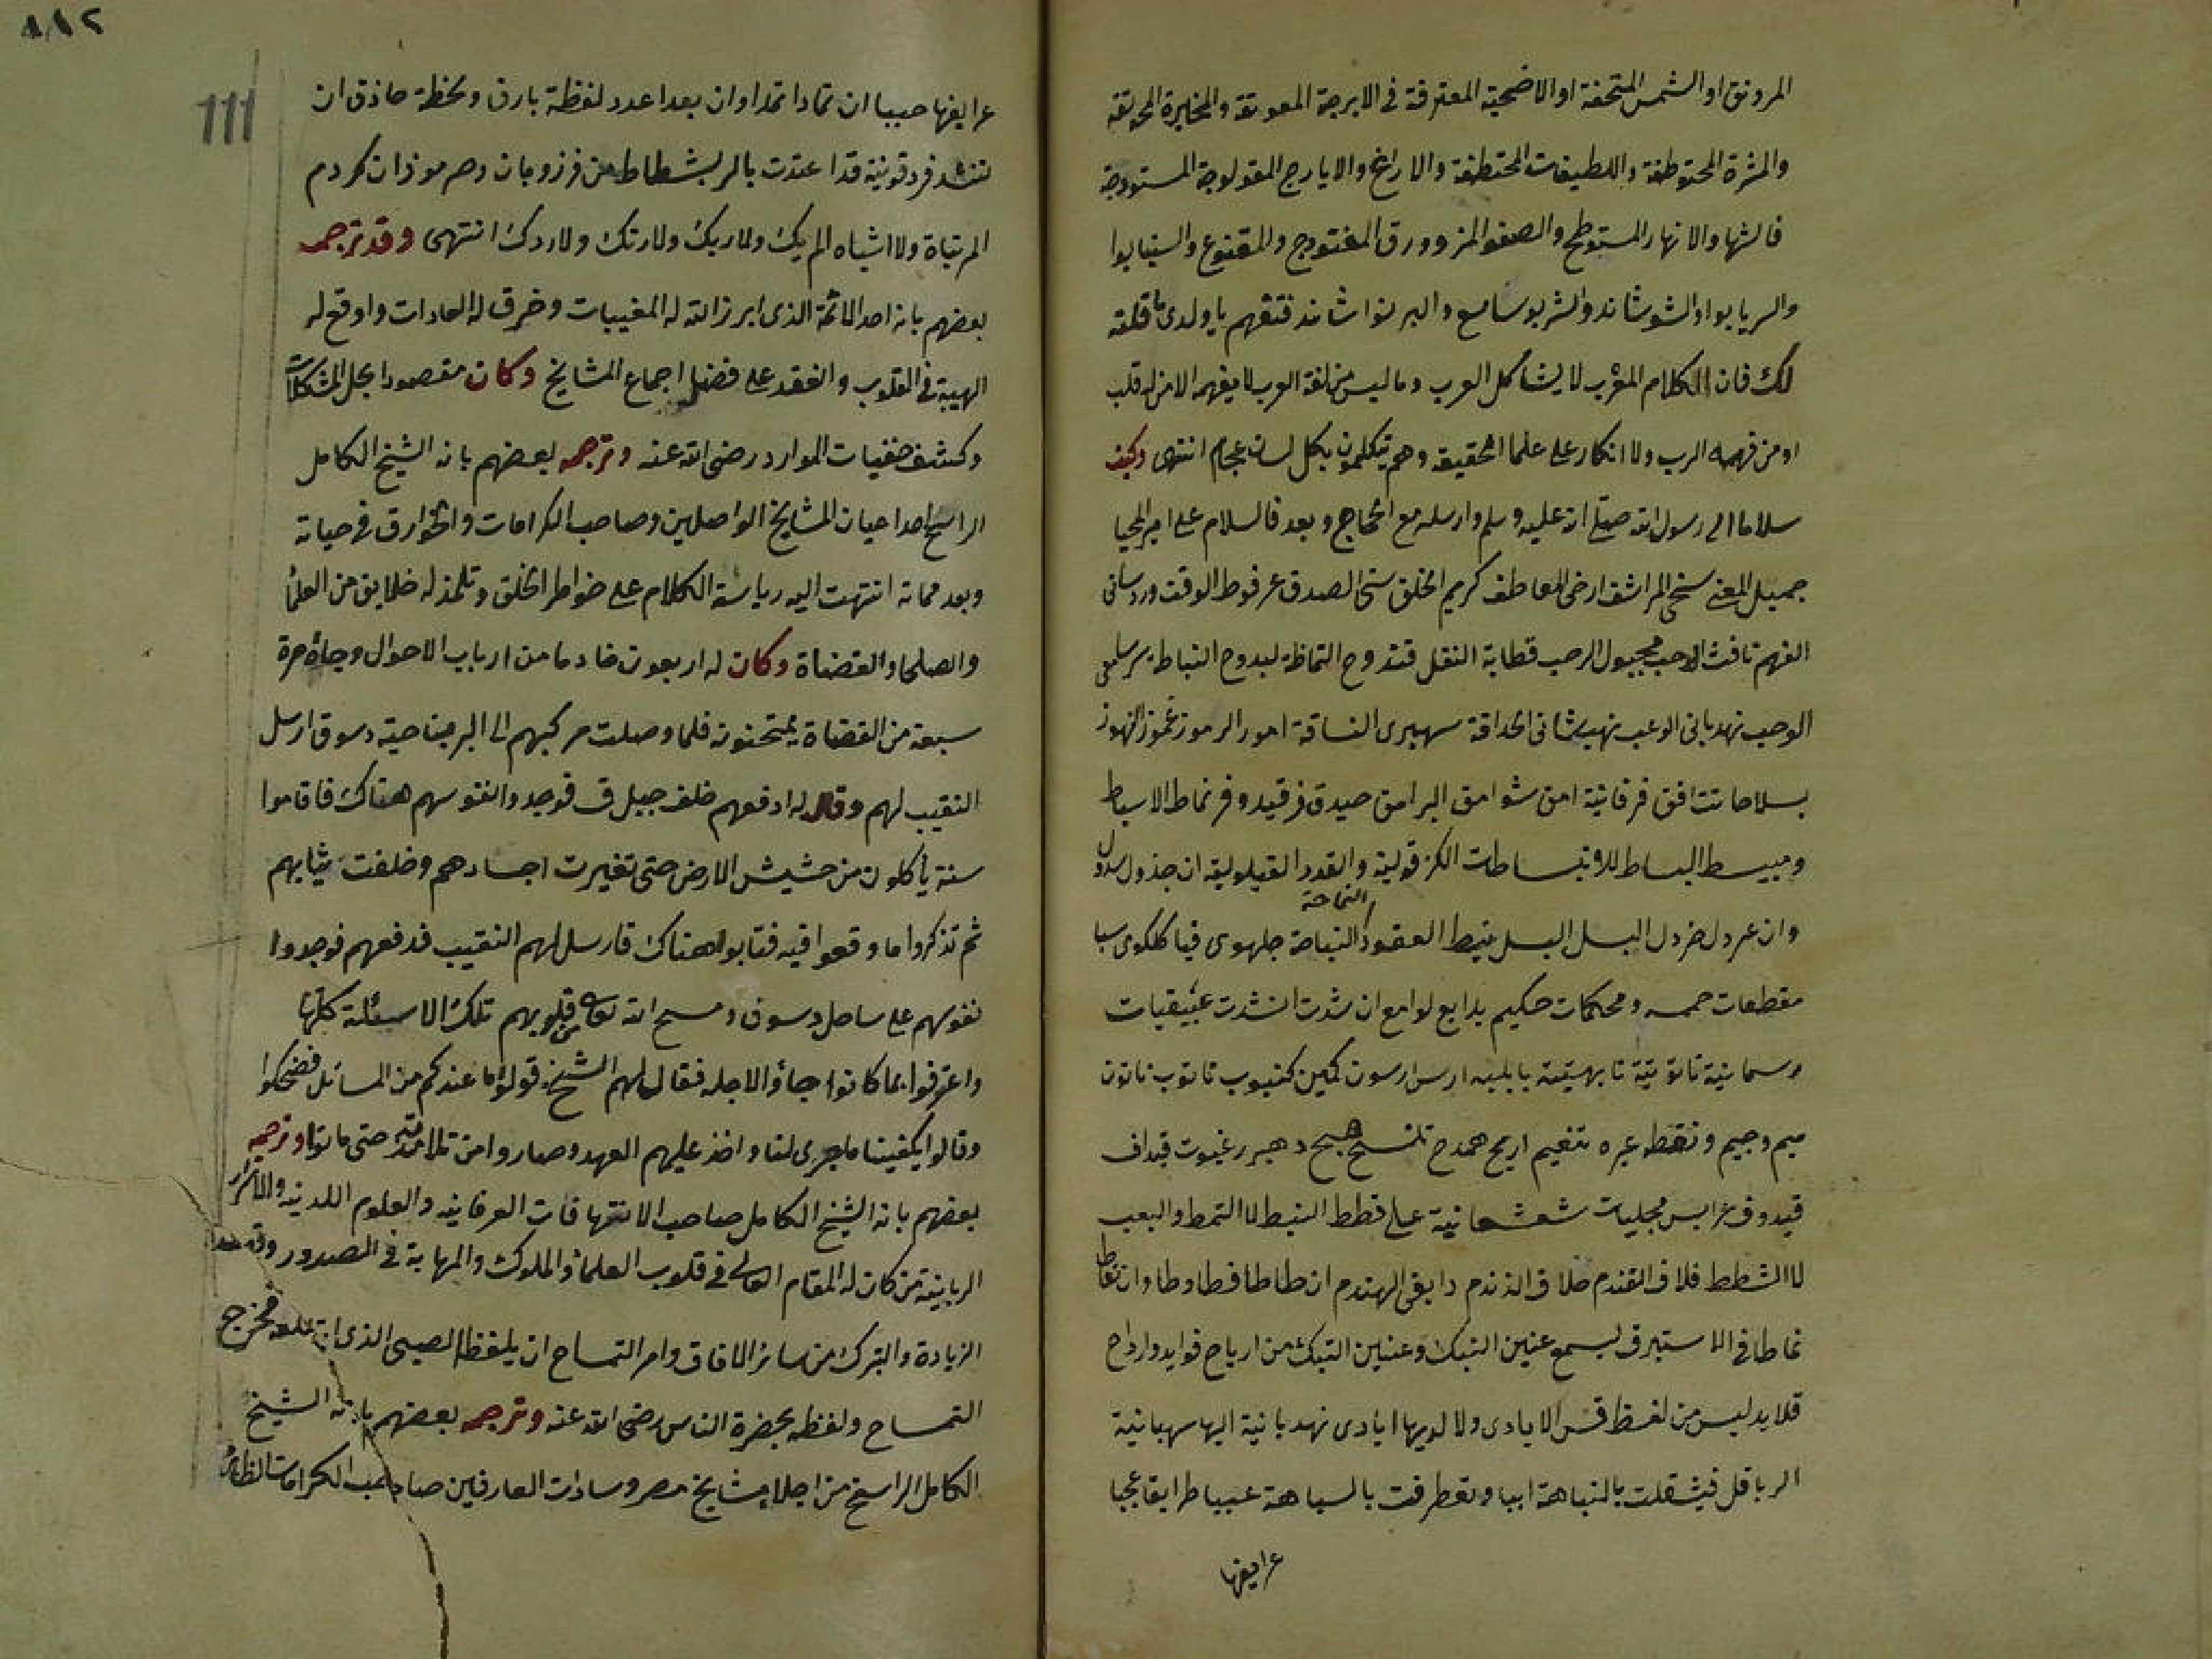 المردنق او الشمس المتحفة او الاضحية المعترفة في الابرجة المعونقة والمخايرة المحونقة
والمشرة المحتوطفة واللطيفات المختطفة والاراغ والايارج المقولوجة المستودجة
فالشهاوالانهار المستوطح والصفو المز وورق المفتودج والمقنوع والسينابوا
والسريابوا والشوشاند والشربوسامع والبرنواشاند فتفهم ياولدى ما قلته
لك فان الكلام المغرب لا يشاكل العرب وما ليس من لغة العرب لا يفهمه الا من له قلب
او من فهمه الرب ولا انكار على علما الحقيقة وهم يتكلمون بكل لسان عجام انتهى وكتب
سلاما الى رسول الله صلى الله عليه وسلم وارسله مع الحجاج وبعد فالسلام على امير المحيا
جميل المعنى سخى المراشف ارضى المعاطف كريم الخلق سنى الصدق عرفوط الوقت ورد سانى
الفهم ثاقب الرحب محبول الرحب قطابة النقل قتدوح التماظة ليدوح النباط سر سامى
الوحب نهديانى الوعب نهب شانى الحداقة سهبرى النساقة امور الرموز غموز النهوز
بسلاحات افق فرقانية امق شوامق البرامق حيدق فرقيد وفرنماط الاسباط
ومبيسط البساط للانبساطات الكرقولية والقدد القيلولية ان جذول سدول
التماحة
وان عردل خردل البسل البسل ينبط العقود النباحة جلهوى فيا كلكوى سبا
مقطعات حمسه ومحكمات حكيم بدايع لوامع ان شدت انشدت عبيقيات
وسمانية تاتوتية تابهتية بابلية ارس ارسون كمين كتبوب تاتوب تاتون
ميم وجيم ونقط غيره تنغيم اريح همدح تلتسح هبيج دهبر رغبوت قيداف
قيدوف عرايس مجليات شعشعانية على قطط النبط لا التمط والبعب
لا الشطط فلاق القندم حلاق الدندم دايقى الهندم ان طاطا فطا وطا وان نغاطا
نماطا فى الاستبرق ليسمع عنين التبك وعنين التبك من ارياح فوايد وارداح
قلايد ليس من لفظ قس الايادى ولا لديها ايادى نهديانية ايها سهبانية
الرباقل فيشقلت بالنباهة ابيا وتغطرفت بالسباهة عبيبا طرايقا عجبا
عرايفها
٨٨٢
111
عرايفها حبيبا ان تمادا تمداوان بعدا عدد لفظة بارق ولحظة حاذق ان
تنشد فردقونية قد اعتدت بالر بشطاط من فرزوجان وهم موذان كردم
المرتباة ولا اشباه الم يك ولا ريك ولا رتك ولا ردك انتهى وقد ترجمه
بعضهم بانه احد الائمة الذى ابرز الله له المغيبات وخرق له العادات واوقع له
الهيبة فى القلوب وانعقد على فضله اجماع المشايخ وكان مقصودا بحل المشكلات
وكشف خفيات الموارد رضى الله عنه وترجمه بعضهم بانه الشيخ الكامل
الراسخ احد اعيان المشايخ الواصلين وصاحب الكرامات والخوارق فى حياته
وبعد مماته انتهت اليه رياسة الكلام على خواطر الخلق وتلمذ له خلايق من العلما
والصلحا والقضاة وكان له اربعون خادما من ارباب الاحوال وجاءه مرة
سبعة من القضاة يمتحنونه فلما وصلت مركبهم الى البر بناحية دسوق ارسل
النقيب لهم وقال له ادفعهم خلف جبل ق فوجدوا نفوسهم هناك فاقاموا
سنة ياكلون من حشيش الارض حتى تغيرت اجسادهم وخلقت ثيابهم
ثم تذكروا ما وقعوا فيه فتابوا هناك فارسل لهم النقيب فدفعهم فوجدوا
نفوسهم على ساحل دسوق ومسح الله تعالى من قلوبهم تلك الاسئلة كلها
واعترفوا بما كانوا جاؤا لاجله فقال لهم الشيخ قولوا ما عندكم من المسائل فضحكوا
وقالوا يكفينا ماجرى لنا واخذ عليهم العهد وصاروا من تلامذته حتى ماتوا وترجمه
بعضهم بانه الشيخ الكامل صاحب الانتهاقات العرفانية والعلوم اللدنية والاسرار
الربانية من كان له المقام العالى فى قلوب العلما والملوك والمهابة فى الصدور وقصد
الزيادة والتبرك من سائر الافاق وامر التمساح ان يلفظ الصبى الذى ابتلعه فخرج
التمساح ولفظه بحضرة الناس رضى الله عنه وترجمه بعضهم بانه الشيخ
الكامل الراسخ من اجلاء مشايخ مصر وسادات العارفين صاحب الكرامات الظاهرة